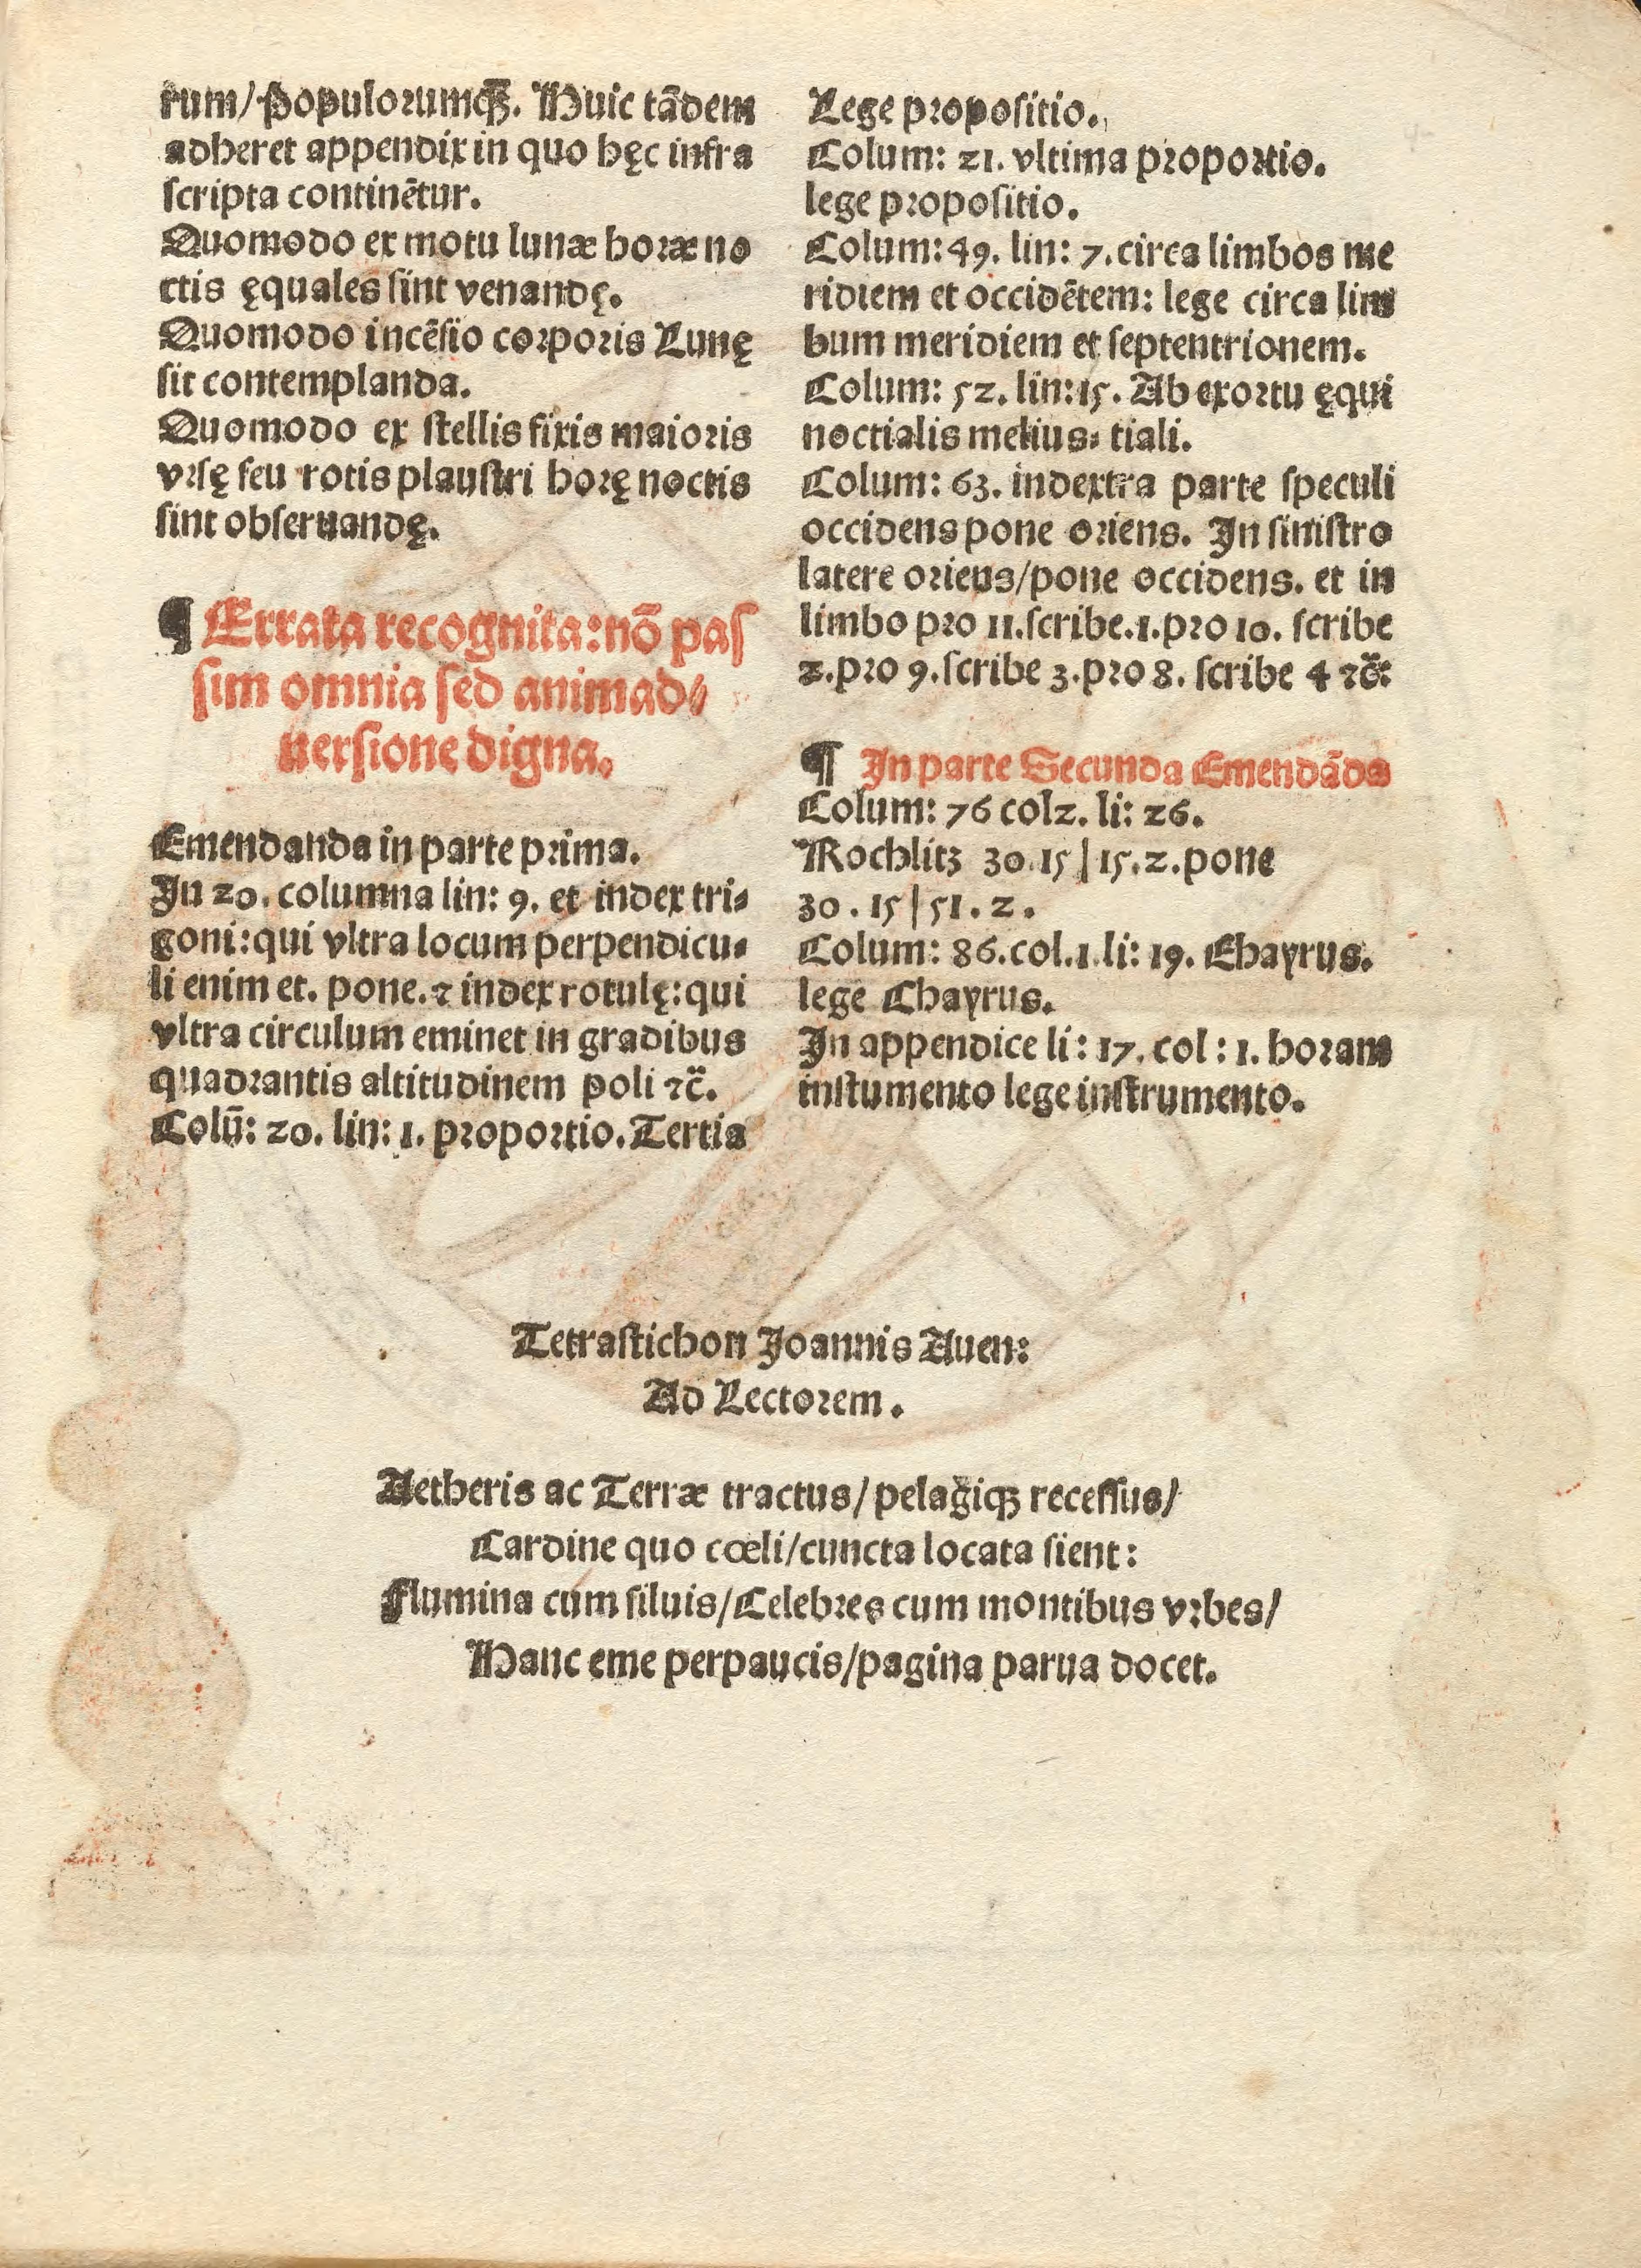 rum/Populorumqꝫ. Huic tãdem
adheret appendix in quo hęc infra
ſcripta continẽtur.
Quomodo ex motu lunæ horæ no
ctis ęquales ſint venandę.
Quomodo incẽſio corporis Lunę
ſit contemplanda.
Quomodo ex ſtellis fixis maioris
vrſę ſeu rotis plauſtri horę noctis
ſint obſeruandę.
¶ Errata recognita: nõ paſ
ſim omnia ſed animad⸗
uerſione digna.
Emendanda in parte prima.
In 20. columna lin: 9. et index tri⸗
goni: qui vltra locum perpendicu⸗
li enim et. pone. ⁊ index rotulę: qui
vltra circulum eminet in gradibus
quadrantis altitudinem poli ⁊c̃.
Colũ: 20. lin: 1. proportio. Tertia
Lege propoſitio.
Colum: 21. vltima proportio.
lege propoſitio.
Colum: 49. lin: 7. circa limbos me
ridiem et occidẽtem: lege circa lim
bum meridiem et ſeptentrionem.
Colum: 52. lin: 15. Ab exortu ęqui
noctialis melius⸗ tiali.
Colum: 63. indextra parte ſpeculi
occidens pone oriens. In ſiniſtro
latere oriens/pone occidens. et in
limbo pro 11. ſcribe. 1. pro 10. ſcribe
2. pro 9. ſcribe 3. pro 8. ſcribe 4 ⁊c̃:
¶ In parte Secunda Emendãda
Colum: 76 col2. li: 26.
Rochlitz 30. 15 | 15. 2. pone
30 . 15 | 51 . 2 .
Colum: 86. col. 1 li: 19. Ehayrus.
lege Chayrus.
In appendice li: 17. col: 1. horam
inſtumento lege inſtrumento.
Tetraſtichon Joannis Auen:
Ad Lectorem.
Aetheris ac Terræ tractus/ pelagiqꝫ receſſus/
Cardine quo cœli/cuncta locata ſient:
Flumina cum ſiluis/Celebres cum montibus vrbes/
Hanc eme perpaucis/pagina parua docet.